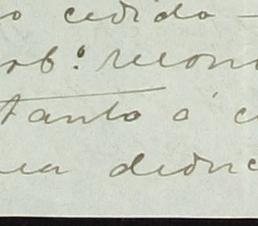 o cedido -
ob.º recon
tanto á c
ua deduc